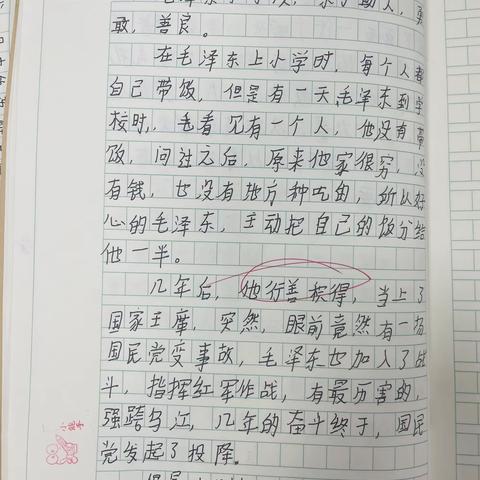 敢，善良。
在毛泽东上小学时，每个人都
自己带饭，但是有一天毛泽东到学
校时，毛看见有一个人，他没有带
饭，问过之后，原来他家很穷，没
有钱，也没有地方种吃的，所以好
心的毛泽东，主动把自己的饭分给
他一半。
几年后，他行善积得，当上了
国家主席，突然，眼前竟然有一场
国民党变事故，毛泽东也加入了战
斗，指挥红军作战，有最厉害的，
强踏乌江，几年的奋斗终于，国民
党发起了投降。
小能手